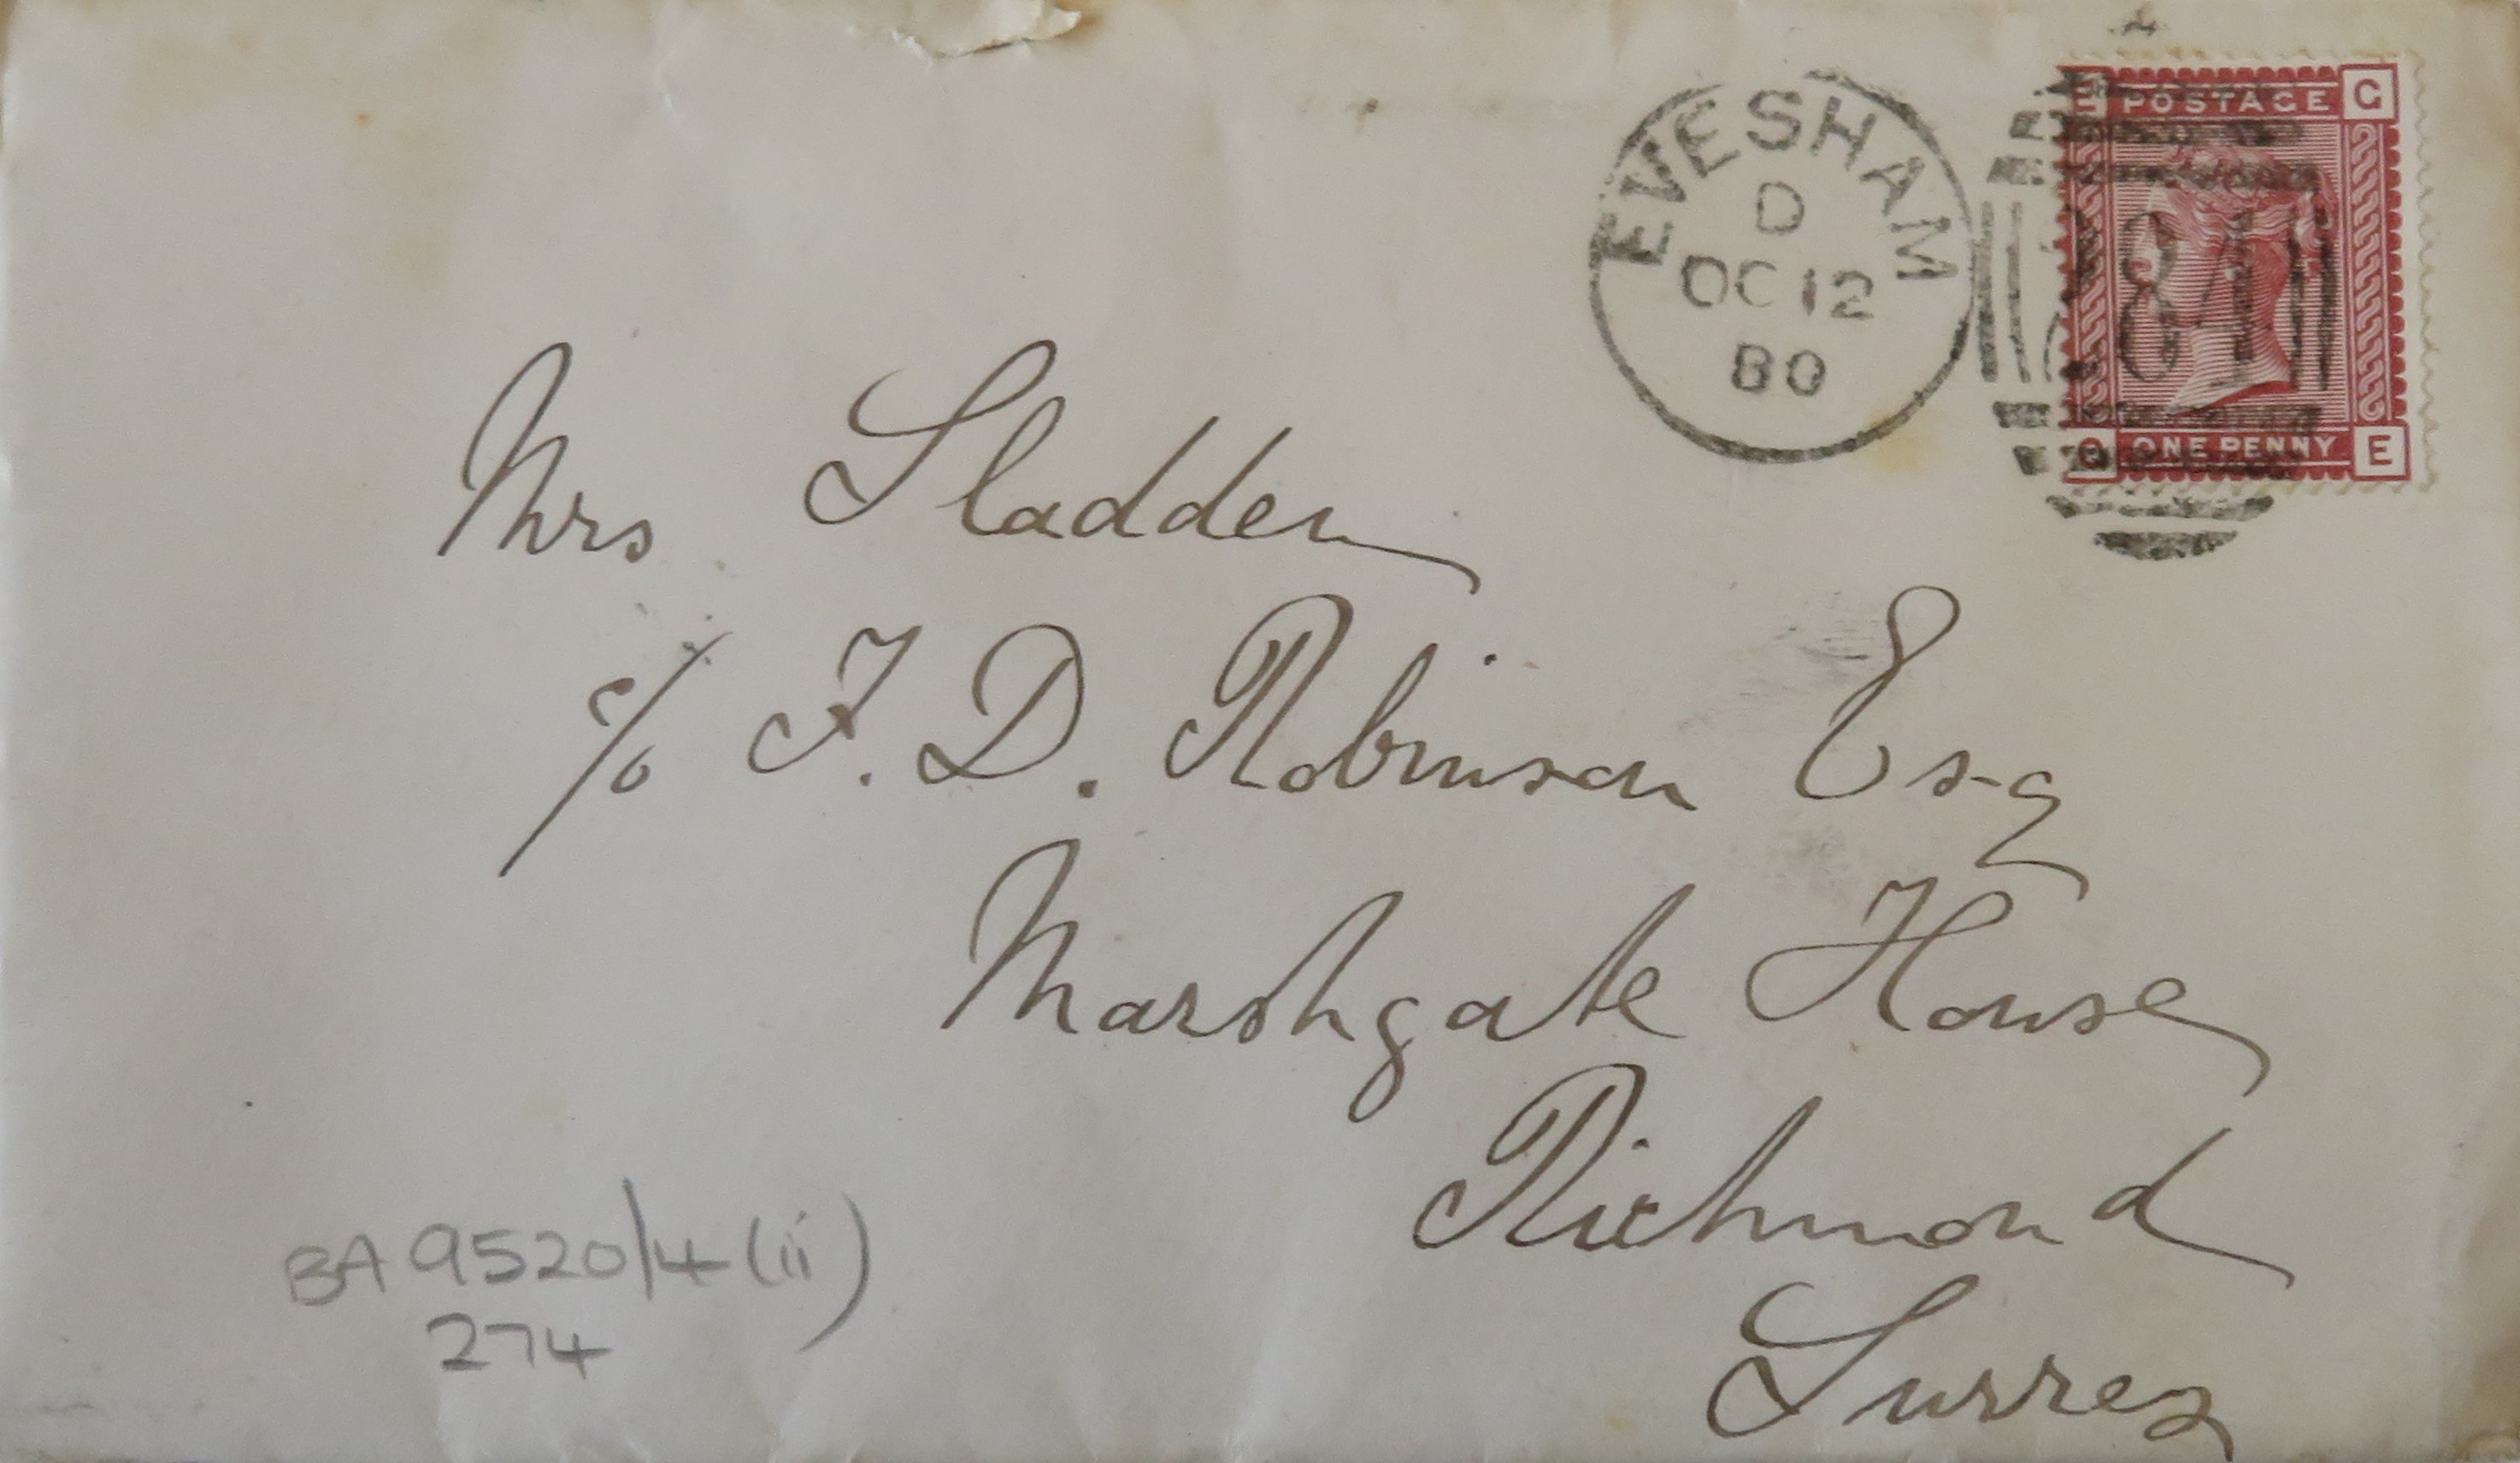 EVESHAM
D
OC 12
80
284
E POSTAGE G
G ONE PENNY E
Mrs Sladden
c/o F. D. Robinson Esq
Marshgate House
Richmond
Surrey
BA 9520/4 (ii)
274